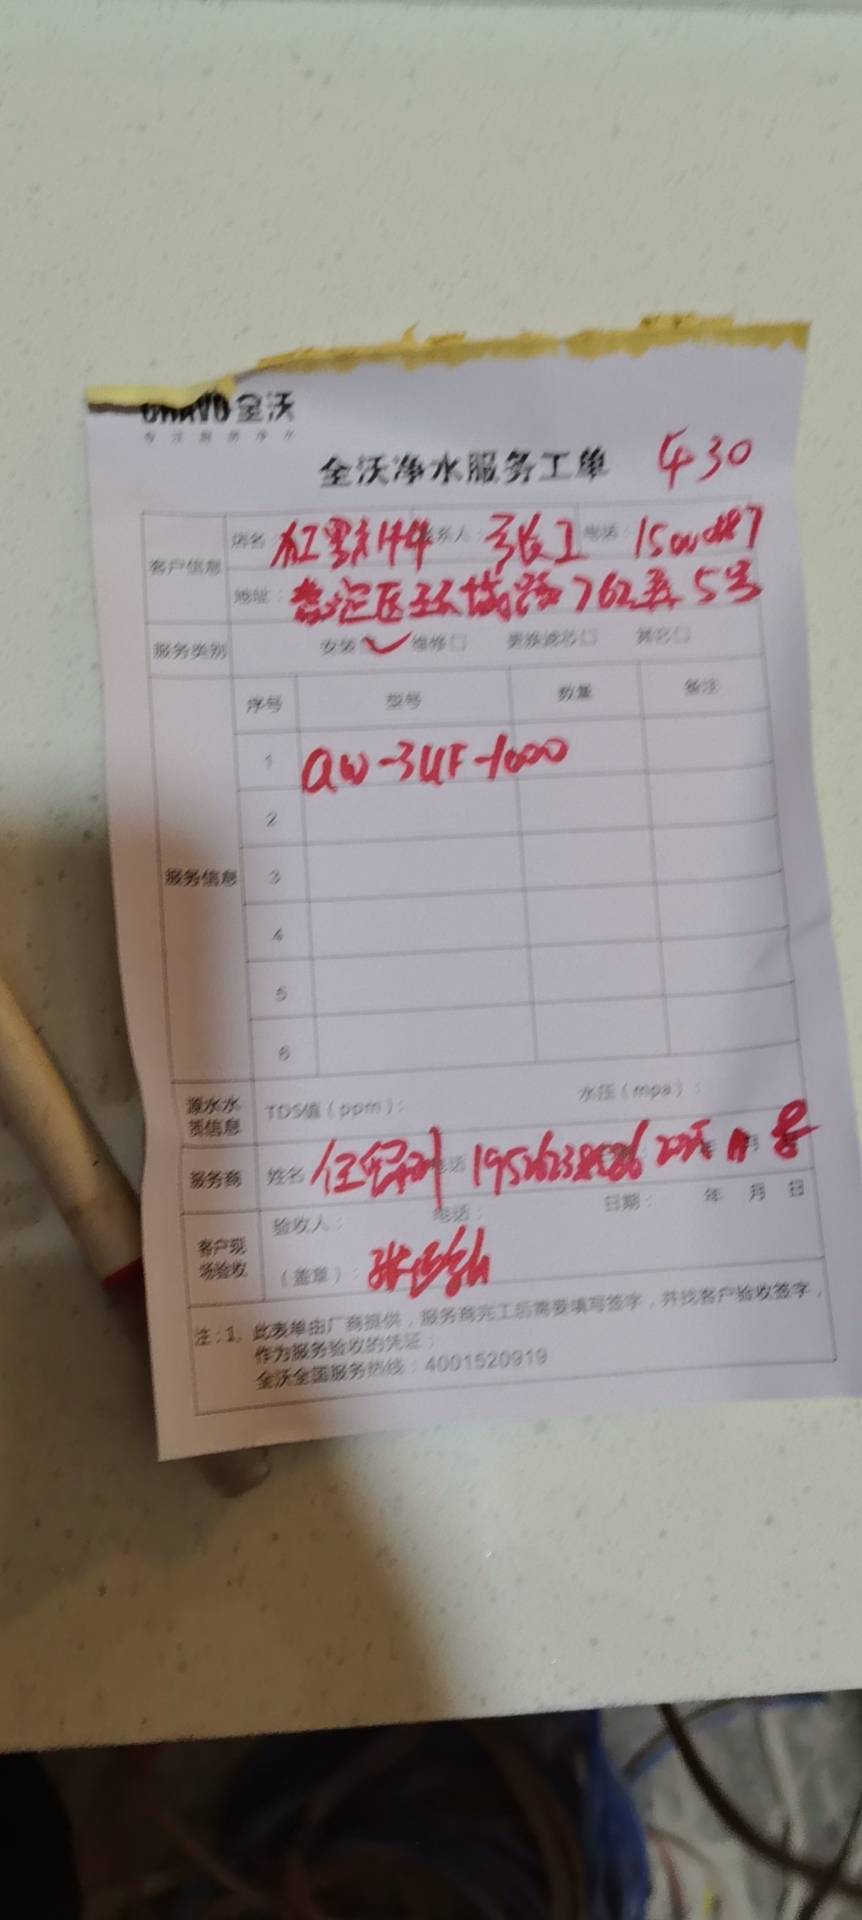 全沃
专注商务净水
全沃净水服务工单 430
客户信息 店名: 联系人: 张工 电话:
地址: 区环城路762弄5号
服务类别 安装 ✓ 维修□ 更换滤芯□ 其它□
序号 型号 数量 备注
1 QW-3UF-1000
2
服务信息 3
4
5
6
源水水质信息 TDS值(ppm): 水压(mpa):
服务商 姓名
客户现场验收 验收人: 电话: 日期: 年 月 日
(盖章):
注:1、此表单由厂商提供,服务商完工后需要填写签字,并找客户验收签字,
作为服务验收的凭证;
全沃全国服务热线:4001520919